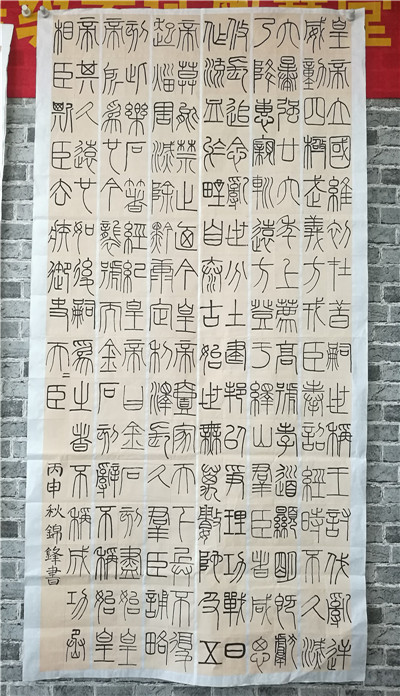 皇帝立國維初在昔嗣世稱王討伐亂逆
威動四極武義方戎臣奉詔經時不久滅
六暴強廿六年上薦高號孝道顯明既獻
乃降惠親巡遠方登于繹山群臣者咸思
攸長追念亂世分土建邦以爭理功戰日
作流血於野自泰古始世無萬數陀及五
帝莫能禁止乃今皇帝壹家天下兵不復
起災害滅除黔康定利澤長久群臣誦略
刻此樂石著經紀皇帝曰金石刻盡始皇
帝所為也今襲號而金石刻辭不稱始皇
帝其久遠也如後嗣為之者不稱成功丞
相臣斯臣去疾御史夫=臣
丙申秋錦鋒書